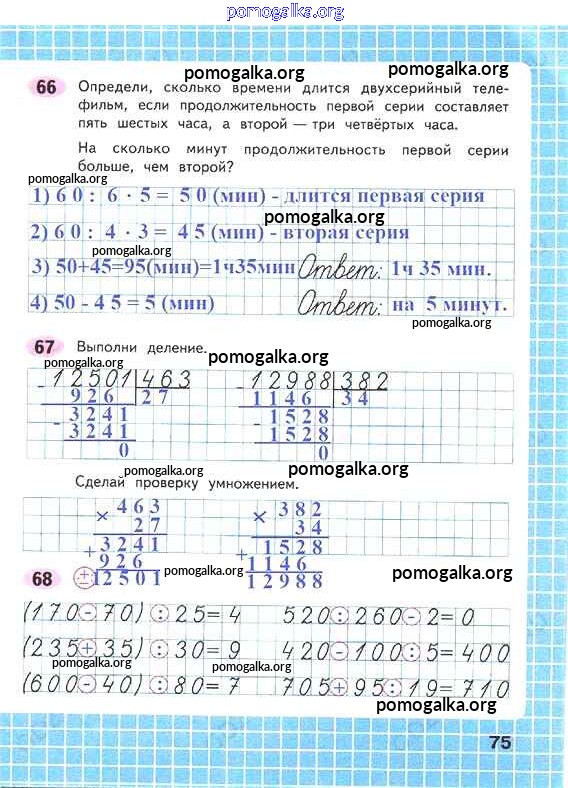 pomogalka.org
pomogalka.org
66 Определи, сколько времени длится двухсерийный теле-
фильм, если продолжительность первой серии составляет
пять шестых часа, а второй — три четвёртых часа.
pomogalka.org
На сколько минут продолжительность первой серии
больше, чем второй?
pomogalka.org
pomogalka.org
1) 60 : 6 · 5 = 50 (мин) - длится первая серия
pomogalka.org
2) 60 : 4 · 3 = 45 (мин) - вторая серия
pomogalka.org
3) 50+45=95(мин)=1ч35мин Ответ: 1ч 35 мин.
4) 50 - 45 = 5 (мин) Ответ: на 5 минут.
pomogalka.org
67 Выполни деление.
pomogalka.org
pomogalka.org
- 12501 463 - 12988 382
926 27 1146 34
- 3241 - 1528
3241 1528
0 0
pomogalka.org
pomogalka.org
Сделай проверку умножением.
463 382
× 27 × 34
+ 3241 + 1528
926 1146
12501 12988
pomogalka.org
pomogalka.org
pomogalka.org
68 ±
(170-70):25=4 520:260-2=0
(235+35):30=9 420-100:5=400
pomogalka.org
pomogalka.org
(600-40):80=7 705+95:19=710
pomogalka.org
75